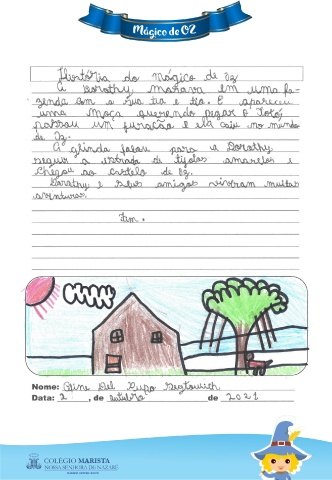 Mágico de OZ
História do mágico de Oz
A Dorothy morava em uma fa-
zenda com a sua tia e tio. E apareceu
uma moça querendo pegar o Totó,
passou um furação e ela caiu no mundo
de Oz.
A glinda falou para a Dorothy
seguir a estrada de tijolos amarelos e
chegou ao castelo de Oz.
Dorothy e seus amigos viveram muitas
aventuras.
Fim.
Nome: Del
Data: 2, de outubro de 2021
COLÉGIO MARISTA
NOSSA SENHORA DE NAZARÉ